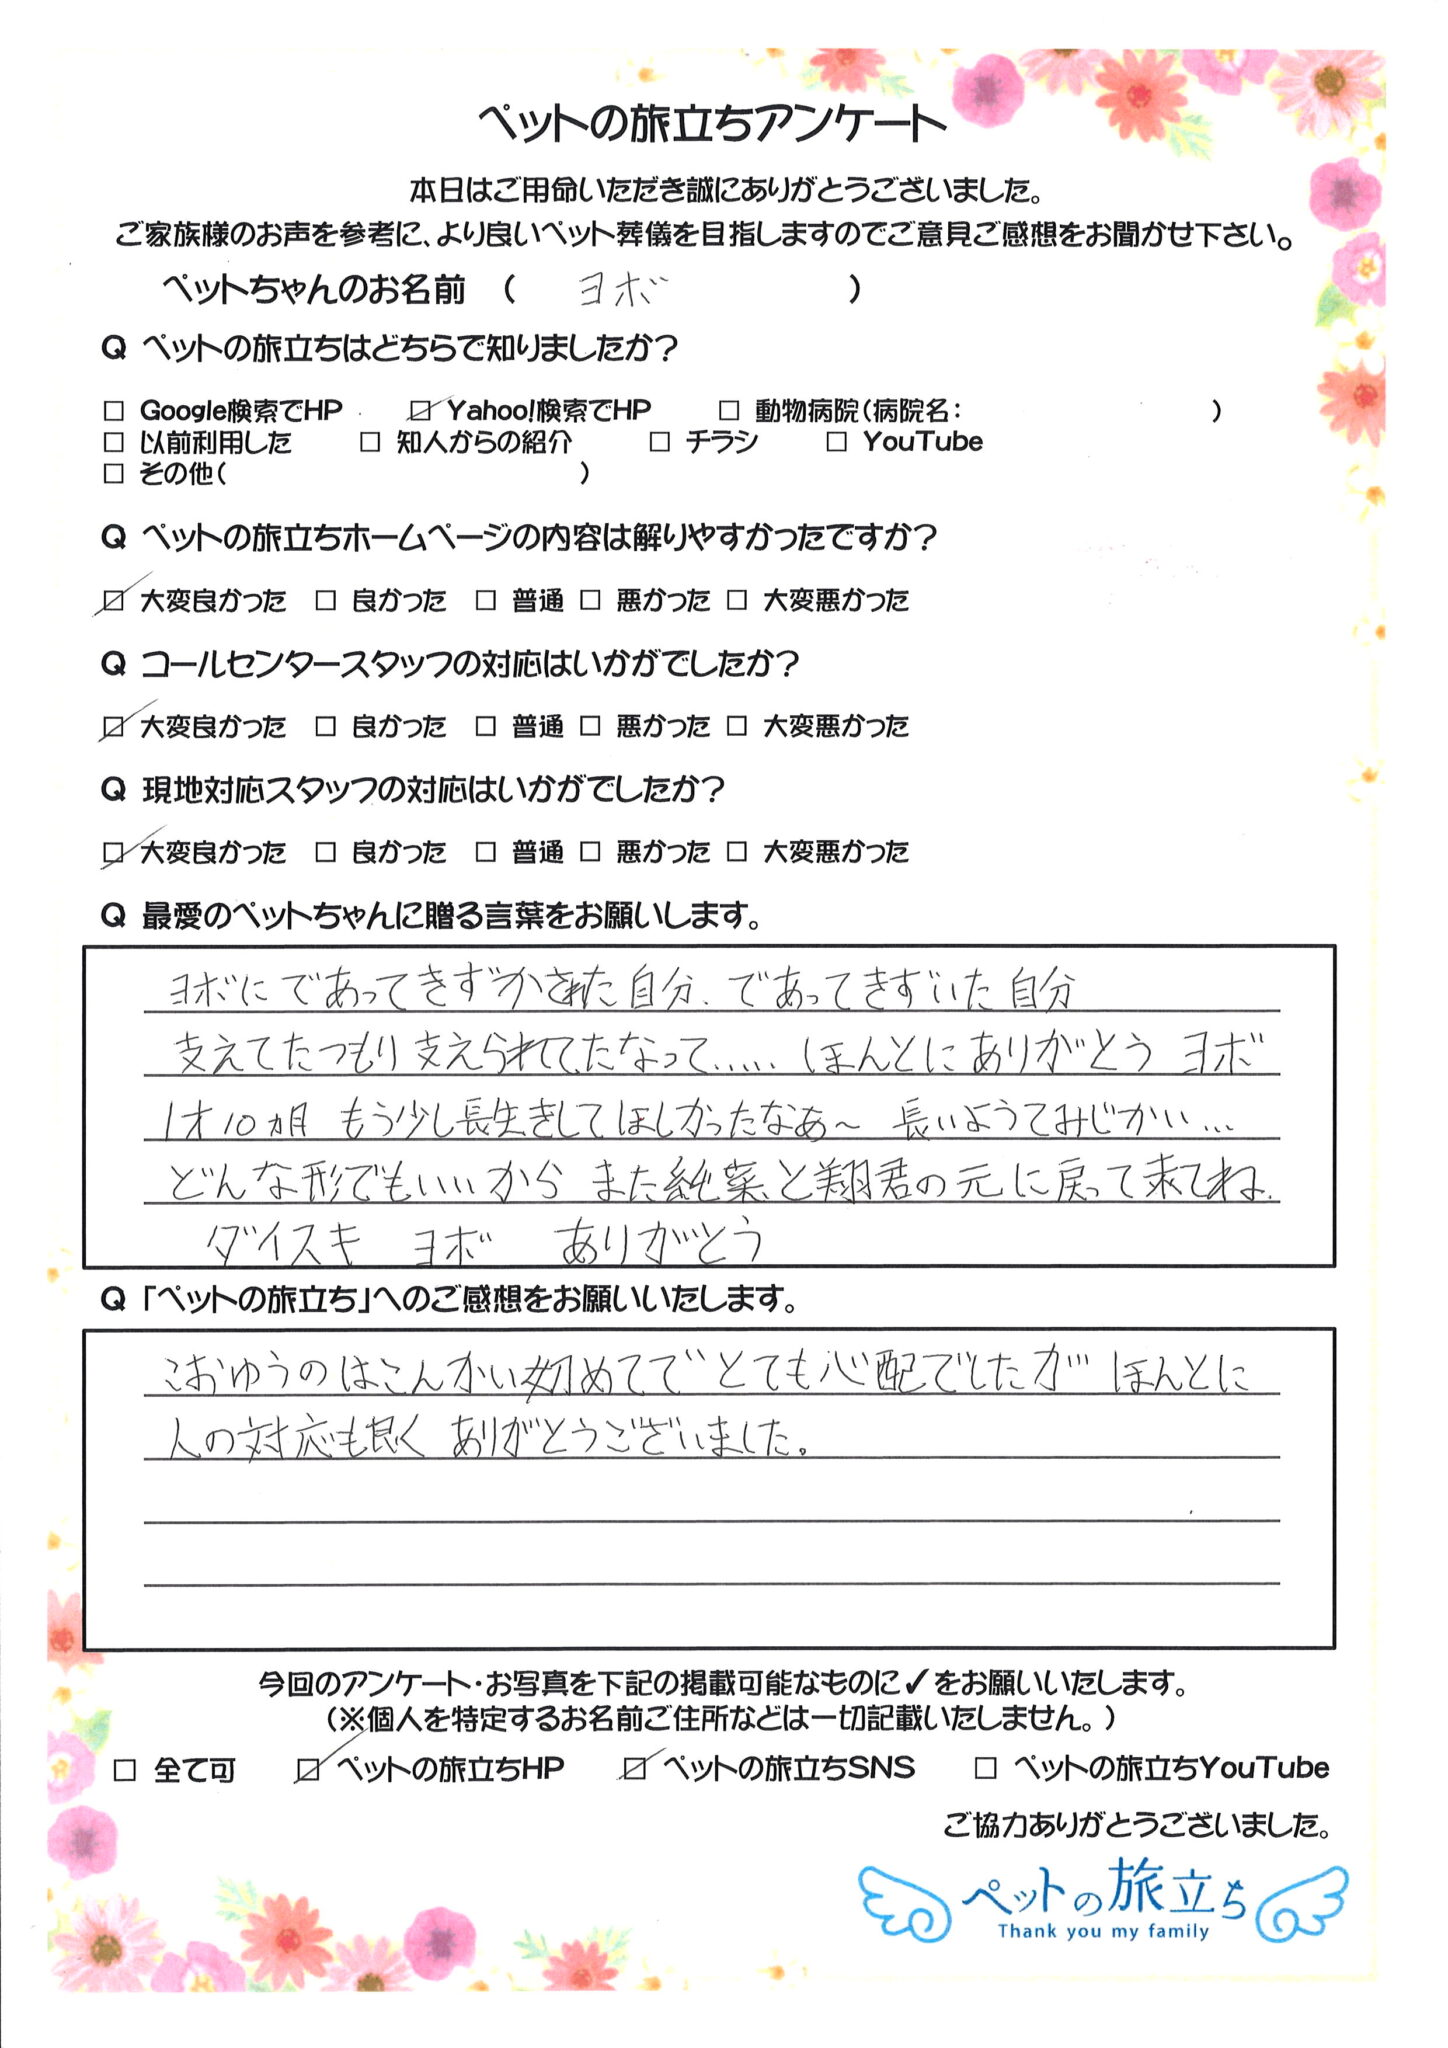 ペットの旅立ちアンケート
本日はご用命いただき誠にありがとうございました。
ご家族様のお声を参考に、より良いペット葬儀を目指しますのでご意見ご感想をお聞かせ下さい。
ペットちゃんのお名前 ( ヨボ )
Q ペットの旅立ちはどちらで知りましたか?
□ Google検索でHP ☑ Yahoo!検索でHP □ 動物病院(病院名: )
□ 以前利用した □ 知人からの紹介 □ チラシ □ YouTube
□ その他( )
Q ペットの旅立ちホームページの内容は解りやすかったですか?
☑ 大変良かった □ 良かった □ 普通 □ 悪かった □ 大変悪かった
Q コールセンタースタッフの対応はいかがでしたか?
☑ 大変良かった □ 良かった □ 普通 □ 悪かった □ 大変悪かった
Q 現地対応スタッフの対応はいかがでしたか?
☑ 大変良かった □ 良かった □ 普通 □ 悪かった □ 大変悪かった
Q 最愛のペットちゃんに贈る言葉をお願いします。
ヨボにであってきずかされた自分、であってきずいた自分
支えてたつもり支えられてたなって..... ほんとにありがとう ヨボ
1才10ヵ月 もう少し長生きしてほしかったなあ～ 長いようでみじかい...
どんな形でもいいから また純菜と翔君の元に戻って来てね、
ダイスキ ヨボ ありがとう
Q 「ペットの旅立ち」へのご感想をお願いいたします。
こおゆうのはこんかい初めてで とても心配でしたが ほんとに
人の対応も良く ありがとうございました。
今回のアンケート・お写真を下記の掲載可能なものに✓をお願いいたします。
(※個人を特定するお名前ご住所などは一切記載いたしません。)
□ 全て可 ☑ ペットの旅立ちHP ☑ ペットの旅立ちSNS □ ペットの旅立ちYouTube
ご協力ありがとうございました。
ペットの旅立ち
Thank you my family